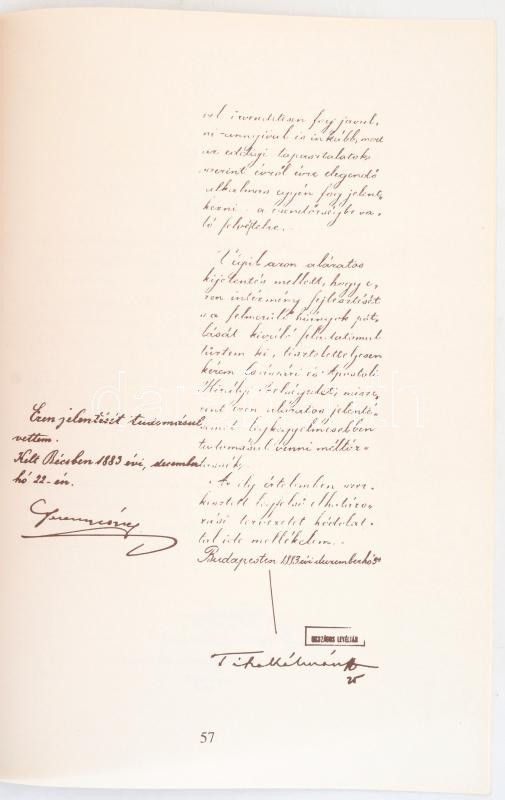 vel örvendetesen fog javul-
ni annyival is inkább, mert
az eddigi tapasztalatok
szerint évről évre elegendő
alkalmas egyén fog jelent-
kezni a csendőrségbe va-
ló felvételre.
Végül azon alázatos
kijelentés mellett, hogy e-
zen intézmény fejlesztését
s a felmerülő hiányok pót-
lását kiváló feladatomul
tűztem ki, tiszteletteljesen
kérem Császári és Apostoli
Királyi Felségedet,
ezen alázatos jelenté-
semet legkegyelmesebben
tudomásul venni méltóz-
tassék.
Az ily értelemben szer-
kesztett legfelső elhatáro-
zási tervezetet hódolat-
tal ide mellékelem.
Budapesten 1883 évi december hó
Ezen jelentését tudomásul
vettem.
Kelt Bécsben 1883 évi, december
hó 22-én.
Ferencz József
ORSZÁGOS LEVÉLTÁR
Tisza Kálmán
57